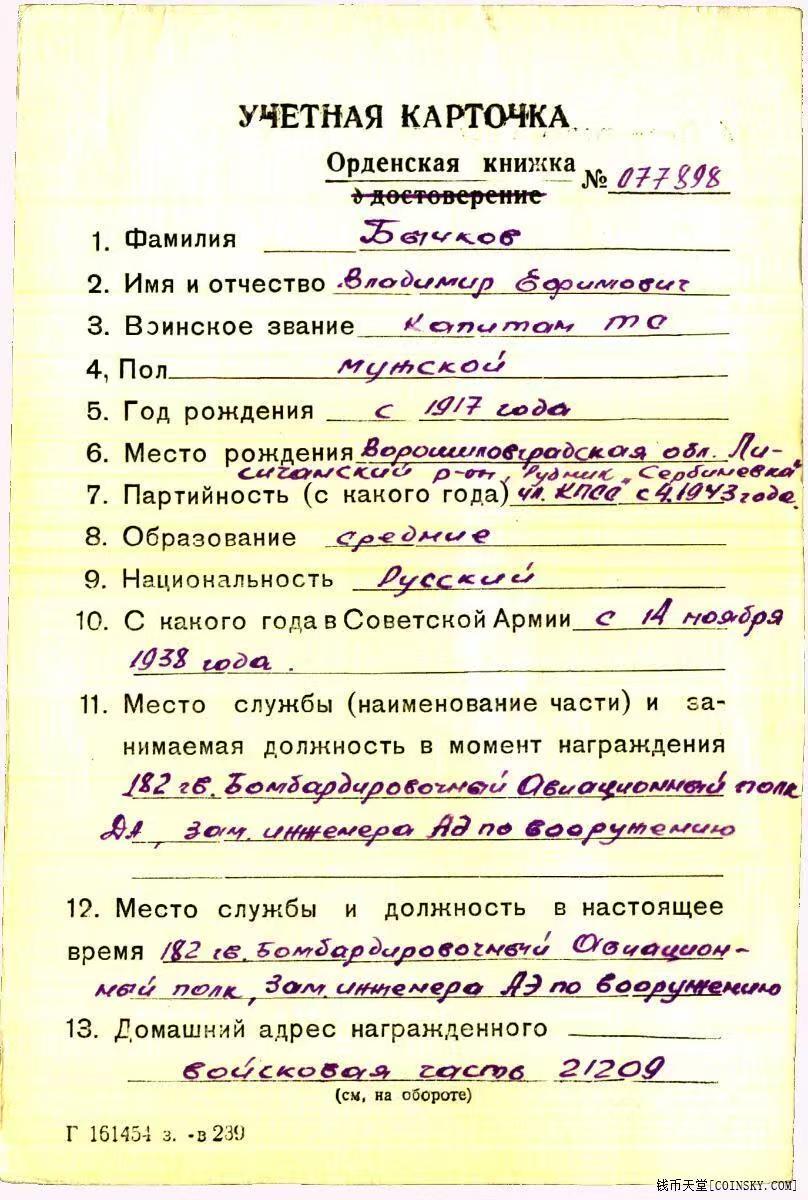 УЧЕТНАЯ КАРТОЧКА
Орденская книжка
удостоверение № 077898
1. Фамилия Бычков
2. Имя и отчество Владимир Ефимович
3. Воинское звание капитан ТС
4, Пол мужской
5. Год рождения с 1917 года
6. Место рождения Ворошиловградская обл. Ли-
сичанский р-он, Рудник „Сербиневка"
7. Партийность (с какого года) чл. КПСС с 4.1943 года.
8. Образование средние
9. Национальность Русский
10. С какого года в Советской Армии с 14 ноября
1938 года.
11. Место службы (наименование части) и за-
нимаемая должность в момент награждения
182 гв. Бомбардировочный Авиационный полк
ДА, Зам. инженера АЭ по вооружению
12. Место службы и должность в настоящее
время 182 гв. Бомбардировочный Авиацион-
ный полк, Зам. инженера АЭ по вооружению
13. Домашний адрес награжденного
войсковая часть 21209
(см, на обороте)
Г 161454 з. -в 239
钱币天堂[COINSKY.COM]